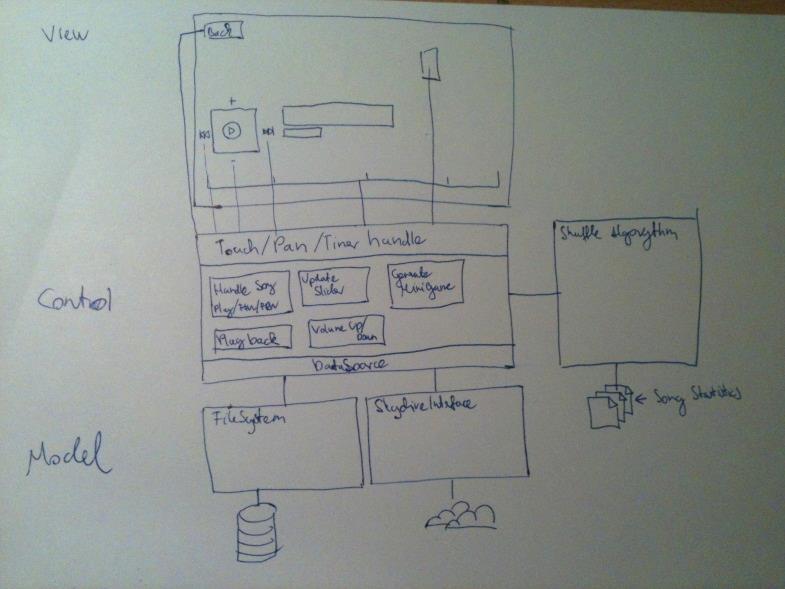 View
Back
+
-
Touch/Pan/Timer handle
Shuffle Algorythm
Control
Handle Song
Play/FFW/RRW
Update
Slider
Generate
Minigame
Playback
Volume Up/
Down
DataSource
FileSystem
SkydriveInterface
← Song Statistics
Model